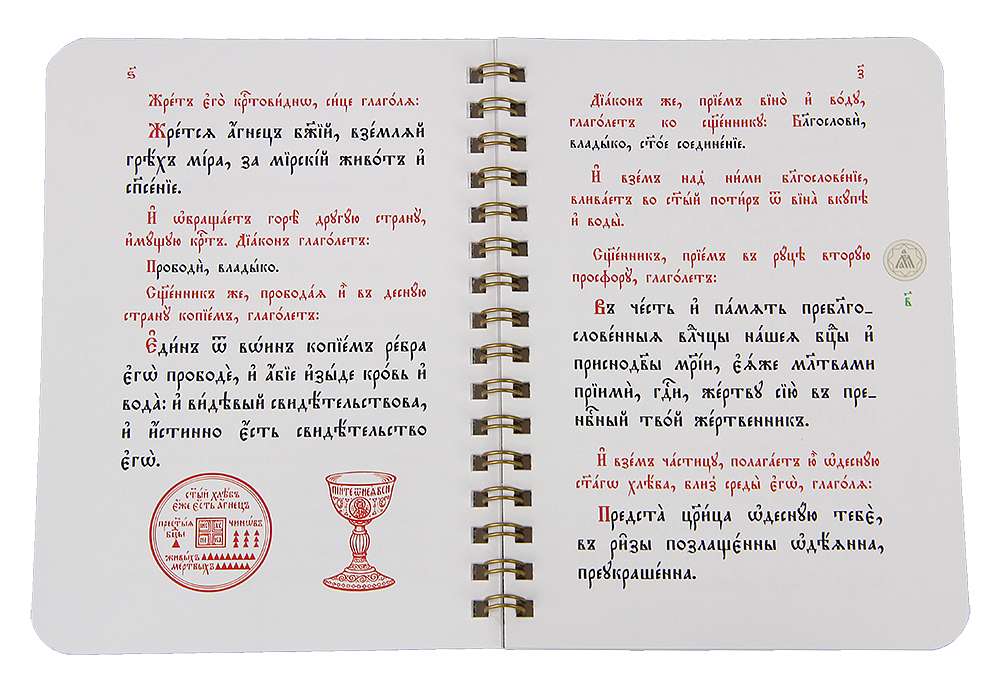 ѕ҃
Жре́тъ є҆го̀ крⷭ҇тови́днѡ, си́це глаго́лѧ:
Жре́тсѧ а҆́гнецъ бж҃їй, взе́млѧй
грѣ́хъ мі́ра, за мїрскі́й живо́тъ и҆
сп҃се́нїе.
И҆ ѡ҆браща́етъ горѣ̀ дрꙋгꙋ́ю странꙋ̀,
и҆мꙋ́щꙋю крⷭ҇тъ. Дїа́конъ глаго́летъ:
Прободѝ, влады́ко.
Сщ҃е́нникъ же, прободаѧ и҆̀ въ деснꙋ́ю
странꙋ̀ копїе́мъ, глаго́летъ:
Є҆ди́нъ ѿ вѡ́инъ копїе́мъ ре́бра
є҆гѡ̀ прободѐ, и҆ а҆́бїе и҆зы́де кро́вь и҆
вода̀: и҆ ви́дѣвый свидѣ́тельствова,
и҆ и҆́стинно є҆́сть свидѣ́тельство
є҆гѡ̀.
ст҃ы́й хлѣ́бъ
є҆́же є҆́сть а҆́гнецъ
прест҃ы́ѧ
бцⷣы
чинѡ́въ
живы́хъ
ме́ртвыхъ
ПІ́ЙТЕ Ѿ НЕѦ̀ ВСЍ
з҃
Дїа́конъ же, прїе́мъ вїно̀ и҆ во́дꙋ,
глаго́летъ ко сщ҃е́нникꙋ: Блгⷭ҇овѝ,
влады́ко, ст҃о́е соедине́нїе.
И҆ взе́мъ над̾ ни́ми блгⷭ҇ове́нїе,
влива́етъ во ст҃ы́й поти́ръ ѿ вїна̀ вкꙋ́пѣ
и҆ воды̀.
Сщ҃е́нникъ, прїе́мъ въ рꙋ́цѣ вторꙋ́ю
просфорꙋ̀, глаго́летъ:
Въ че́сть и҆ па́мѧть пребл҃го_
слове́нныѧ влⷣчцы на́шеѧ бцⷣы и҆
присподв҃ы мр҃і́и, є҆ѧ́же мл҃твами
прїимѝ, гдⷭ҇и, же́ртвꙋ сїю̀ въ пре_
нбⷭ҇ный тво́й же́ртвенникъ.
И҆ взе́мъ части́цꙋ, полага́етъ ю҆̀ ѡ҆деснꙋ́ю
ст҃а́гѡ хлѣ́ба, бли́з̾ среды̀ є҆гѡ̀, глаго́лѧ:
Предста̀ цр҃и́ца ѡ҆деснꙋ́ю тебє̀,
въ ри̑зы позлаще́нны ѡ҆дѣ́ѧнна,
преꙋкраше́нна.
в҃